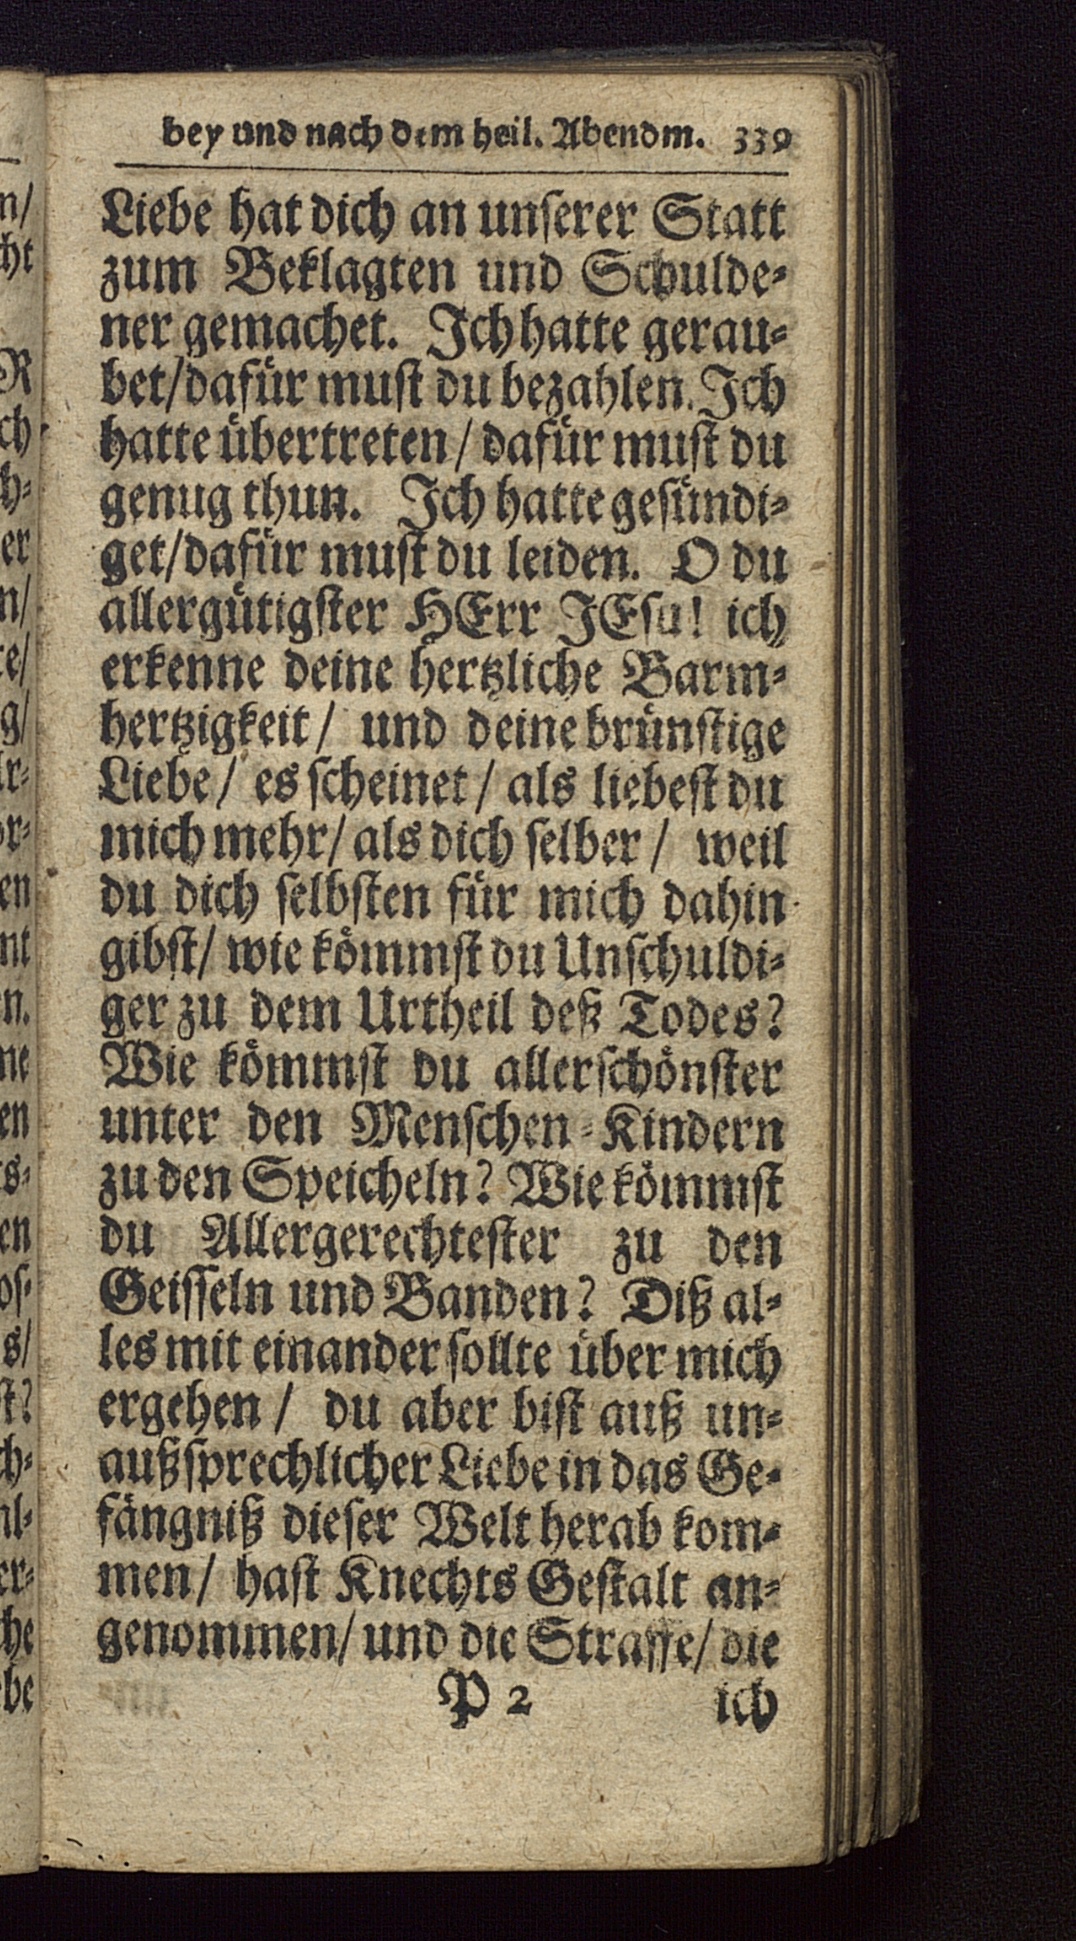 bey und nach dem heil. Abendm. 339
Liebe hat dich an unserer Statt
zum Beklagten und Schulde-
ner gemachet. Ich hatte gerau-
bet/ dafür must du bezahlen. Ich
hatte übertreten/ dafür must du
genug thun. Ich hatte gesündi-
get/ dafür must du leiden. O du
allergütigster HErr JEsu! ich
erkenne deine hertzliche Barm-
hertzigkeit/ und deine brünstige
Liebe/ es scheinet/ als liebest du
mich mehr/ als dich selber/ weil
du dich selbsten für mich dahin
gibst/ wie kömmst du Unschuldi-
ger zu dem Urtheil deß Todes?
Wie kömmst du allerschönster
unter den Menschen-Kindern
zu den Speicheln? Wie kömmst
du Allergerechtester zu den
Geisseln und Banden? Diß al-
les mit einander sollte über mich
ergehen/ du aber bist auß un-
außsprechlicher Liebe in das Ge-
fängniß dieser Welt herab kom-
men/ hast Knechts Gestalt an-
genommen/ und die Straffe/ die
P 2 ich